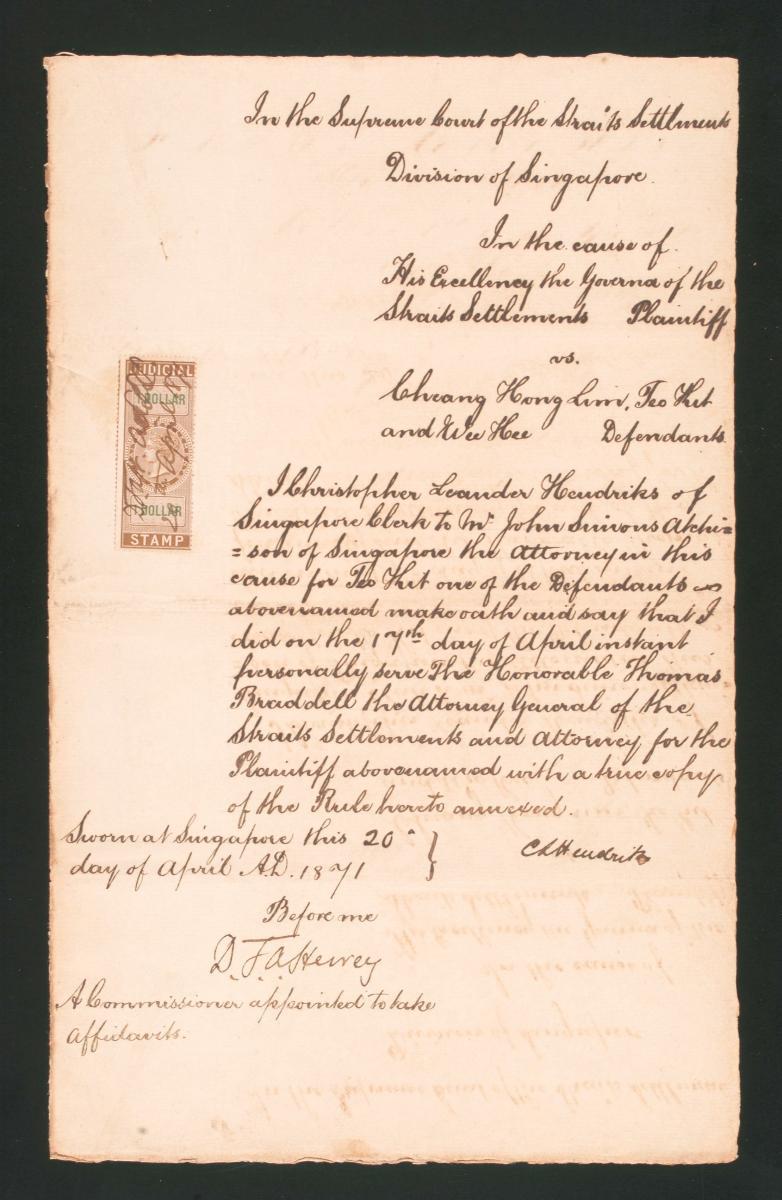 In the Supreme Court of the Straits Settlments
Division of Singapore.
In the cause of.
His Excellency the Governor of the
Straits Settlements Plaintiff
vs.
Cheang Hong Lim, Teo Kit
and Wee Hee Defendants
JUDICIAL
1 DOLLAR
DOLLAR
STAMP
I Christopher Leander Hendriks of
Singapore Clerk to Mr John Simons Atchi=
=son of Singapore the Attorney in this
cause for Teo Kit one of the Defendants
abovenamed make oath and say that I
did on the 17th day of April instant
personally serve The Honorable Thomas
Braddell the Attorney General of the
Straits Settlements and Attorney for the
Plaintiff abovenamed with a true copy
of the Rule hereto annexed.
Sworn at Singapore this 20
day of April A.D. 1871
CLHendriks
Before me
D. F. A. Hervey
A Commissioner appointed to take
affidavits.